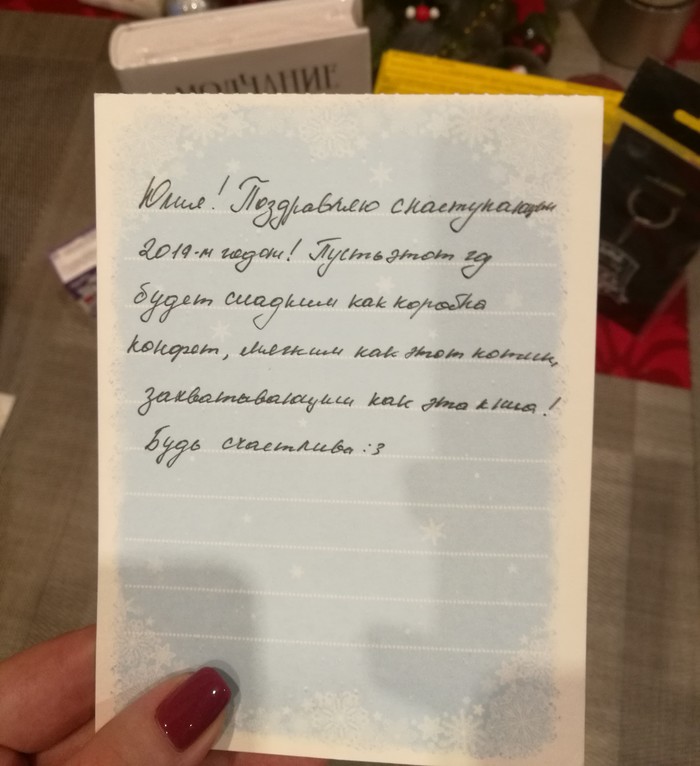 МОЛЧАНИЕ
Юлия! Поздравляю с наступающим
2019-м годом! Пусть этот год
будет сладким как коробка
конфет, мягким как этот котик,
захватывающим как эта книга!
Будь счастлива :3